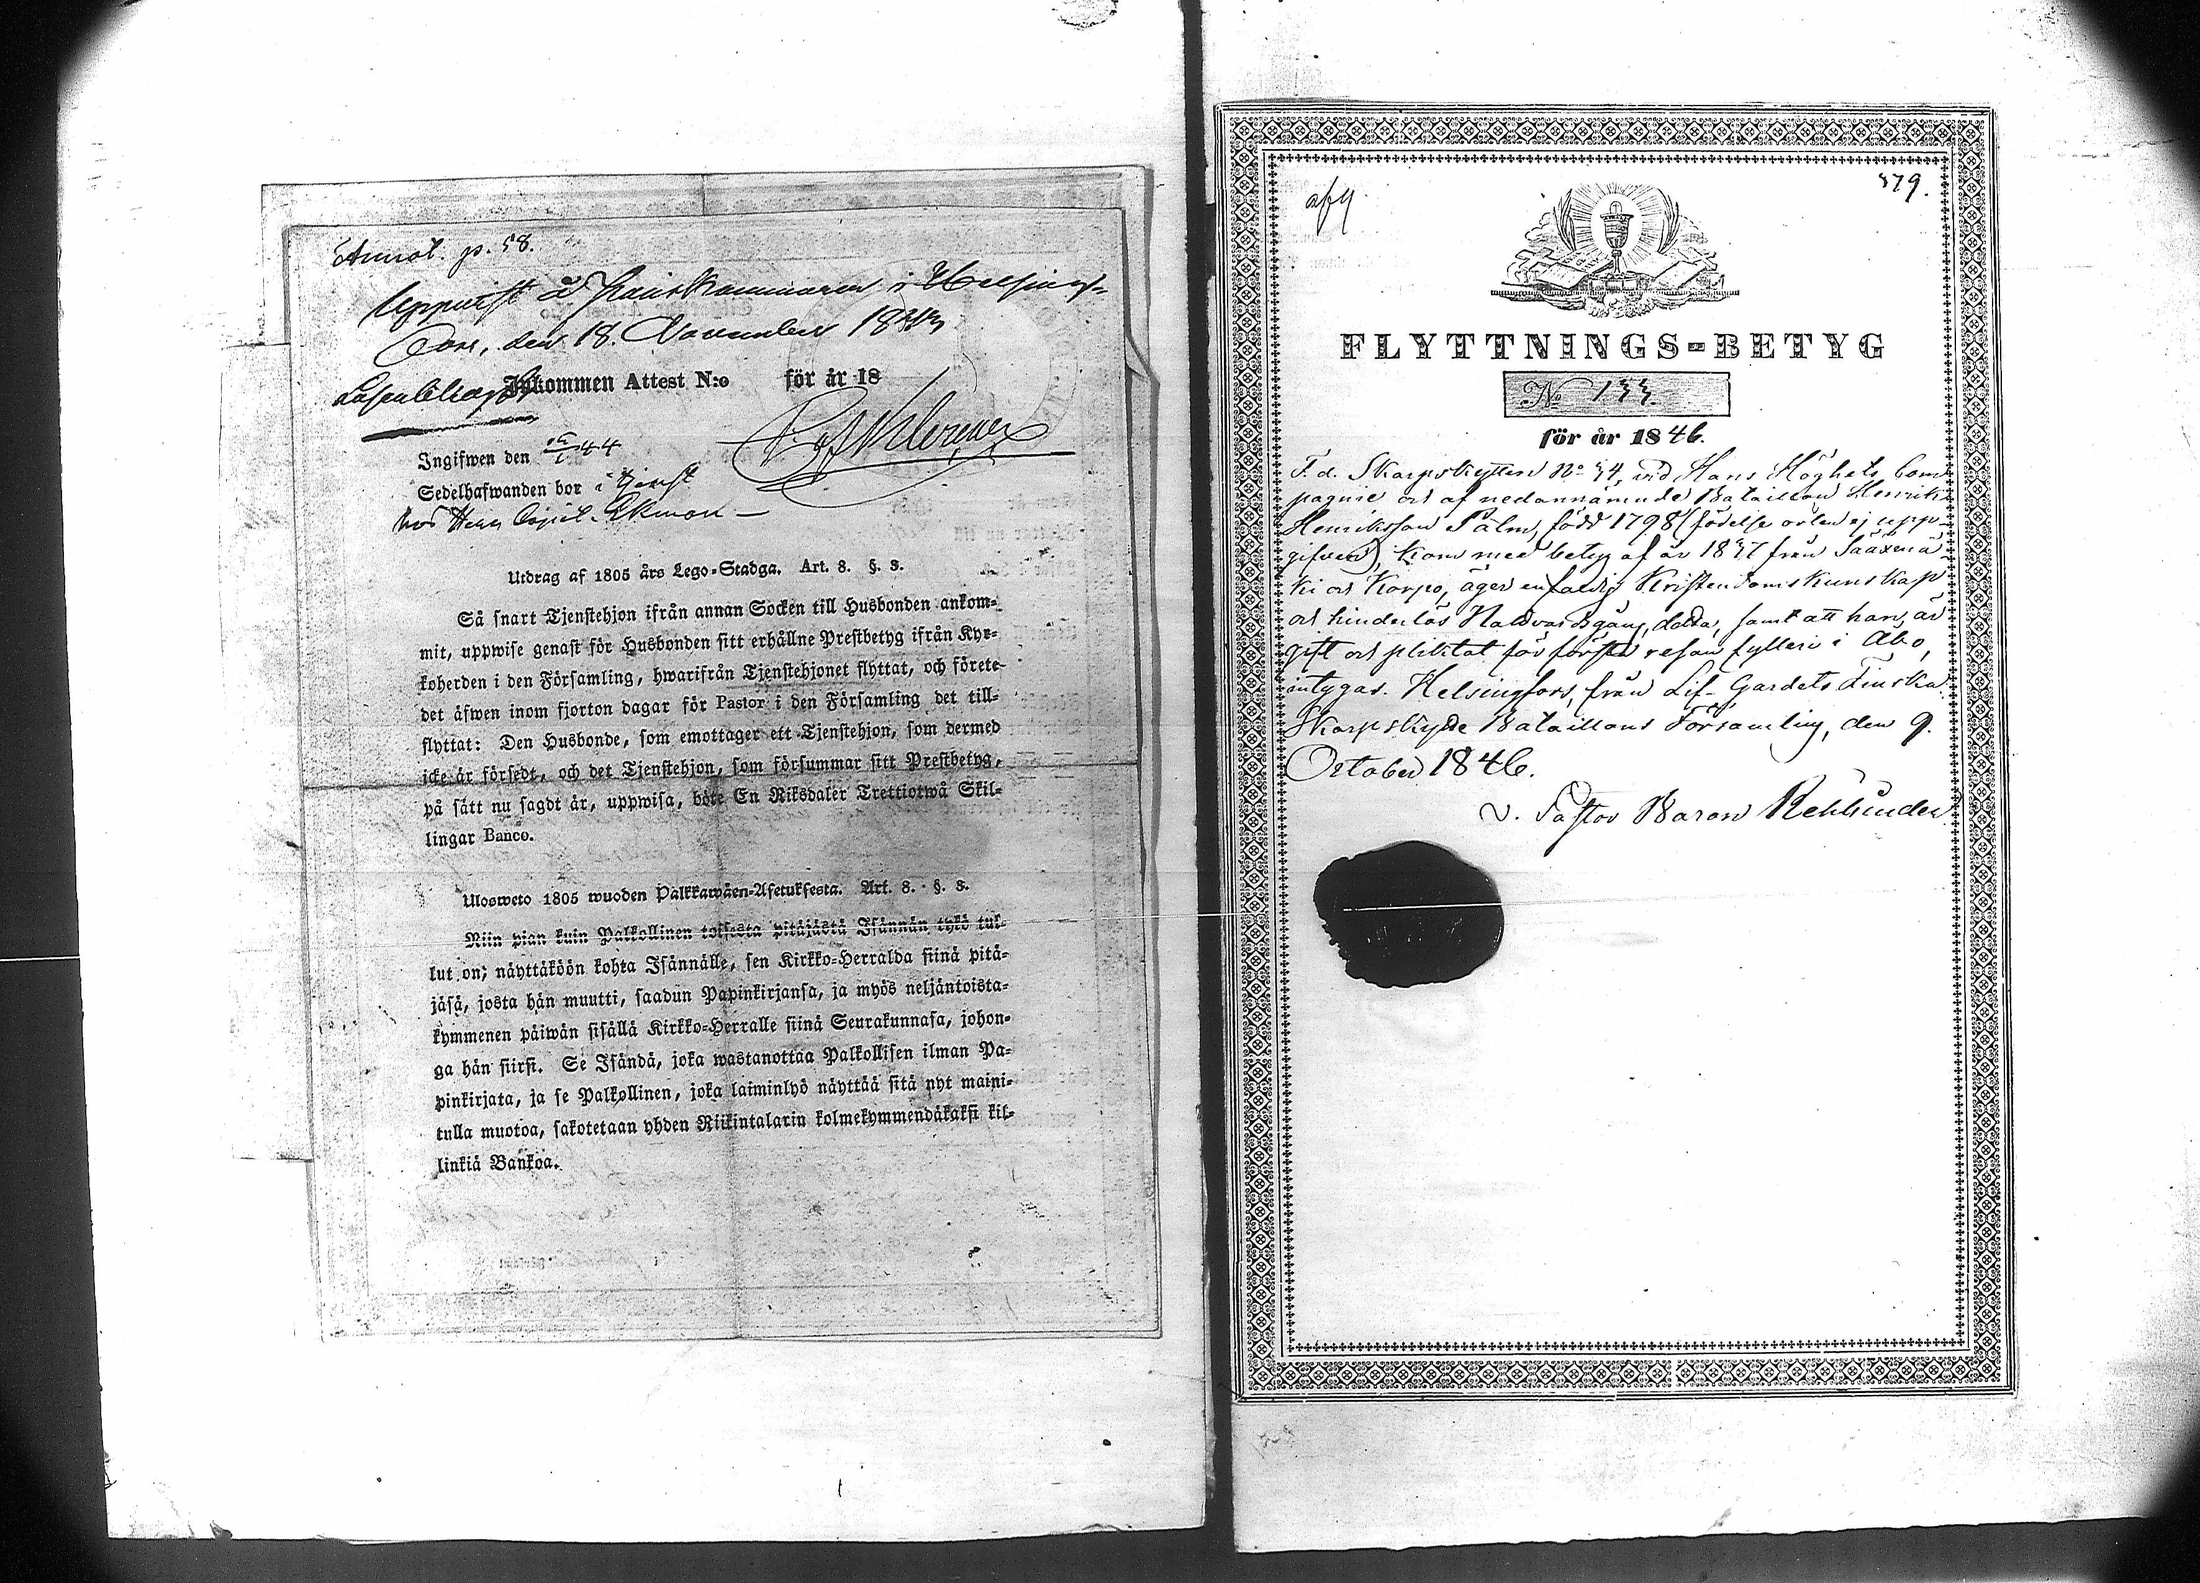 Annot. p. 58.
Uppvist å Häradskammaren i Helsing-
fors, den 18. November 18
Inkommen Attest N:o för år 18
Ingifwen den 44
Sedelhafwanden bor i tjenst
hos Herr Ekman
Utdrag af 1805 års Lego-Stadga. Art. 8. §. 3.
Så snart Tjenstehjon ifrån annan Socken till Husbonden ankom-
mit, uppwise genast för Husbonden sitt erhållne Prestbetyg ifrån Kyr-
koherden i den Församling, hwarifrån Tjenstehjonet flyttat, och förete-
det äfwen inom fjorton dagar för Pastor i den Församling det till-
flyttat: Den Husbonde, som emottager ett Tjenstehjon, som dermed
icke är försedt, och det Tjenstehjon, som försummar sitt Prestbetyg,
på sätt nu sagdt är, uppwisa, böte En Riksdaler Trettiotwå Skil-
lingar Banco.
Ulosweto 1805 wuoden Palkkawäen-Asetuksesta. Art. 8. §. 3.
Niin pian kuin Palkollinen toisesta pitäjästä Isännän tykö tul-
lut on; näyttäköön kohta Isännälle, sen Kirkko-Herralda siinä pitä-
jäsä, josta hän muutti, saadun Papinkirjansa, ja myös neljäntoista-
kymmenen päiwän sisällä Kirkko-Herralle siinä Seurakunnasa, johon-
ga hän siirsi. Se Isändä, joka wastanottaa Palkollisen ilman Pa-
pinkirjata, ja se Palkollinen, joka laiminlyö näyttää sitä nyt maini-
tulla muotoa, sakotetaan yhden Riikintalarin kolmekymmendäkaksi kil-
linkiä Bankoa.
afg
579.
FLYTTNINGS-BETYG
No 133.
för år 1846.
F. d. Skarpskytten No 54, vid Hans Höghets Com
pagnie och af nedannämnde Bataillon Henrik
Henriksson Palm, född 1798 (födelse orten ej upp-
gifven), kom med betyg af år 1837 från Sääxmä
ki och Korpo, äger enfaldig Kristendomskunskap
och hinderlös Nattvardsgång, samt att han är
gift och pliktat för första resan fylleri i Åbo,
intygas. Helsingfors, från Lif-Gardets Finska
Skarpskytte Bataillons Församling, den 9.
October 1846.
v. Pastor Baron Rehbinder